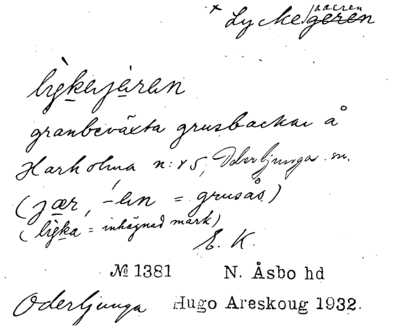 × Lyckejaeren
lỳkajæren
granbeväxta grusbackar å
Harholma n:r 5, Oderljunga sn.
(jær, -en = grusås)
(lỳka = inhägnad mark)
E. K.
№ 1381 N. Åsbo hd
Oderljunga Hugo Areskoug 1932.